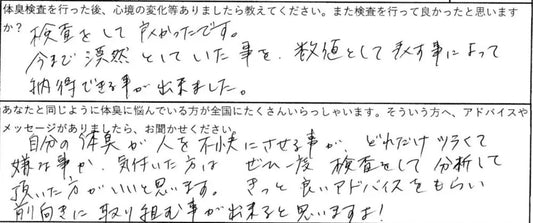 体臭検査を行った後、心境の変化等ありましたら教えてください。また検査を行って良かったと思います
か?
検査をして良かったです。
今まで漠然としていた事を、数値として表す事によって
納得できる事が出来ました。
あなたと同じように体臭に悩んでいる方が全国にたくさんいらっしゃいます。そういう方へ、アドバイスや
メッセージがありましたら、お聞かせください。
自分の体臭が人を不快にさせる事が、どれだけツラくて
嫌な事か、気付いた方は ぜひ一度 検査をして分析して
頂いた方がいいと思います。きっと良いアドバイスをもらい
前向きに取り組む事が出来ると思いますよ!